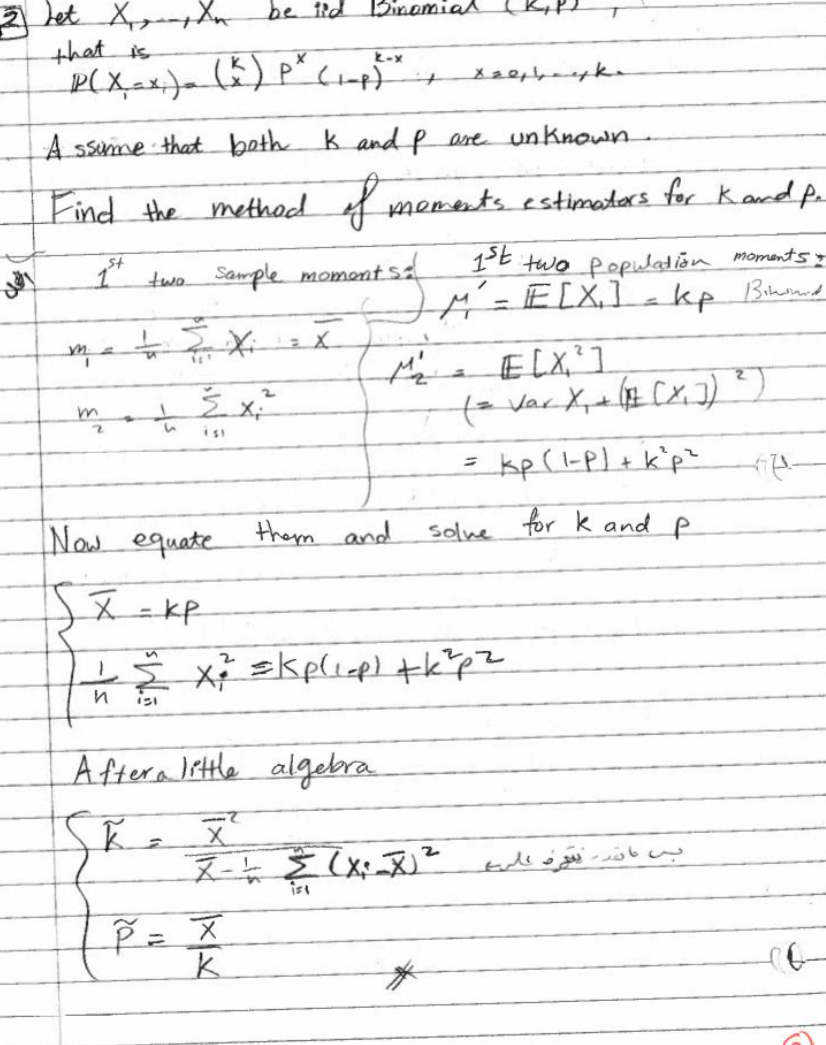 2 Let X₁, ..., Xₙ be iid Binomial (k,p),
that is
P(X₁=xᵢ) = (k x) p^x (1-p)^(k-x), x=0,1,...,k.
Assume that both k and p are unknown.
Find the method of moments estimators for k and p.
1st two sample moments:
m₁ = 1/n Σᵢ₌₁ⁿ Xᵢ = X̄
m₂ = 1/n Σᵢ₌₁ⁿ Xᵢ²
1st two population moments:
μ₁′ = E[X₁] = kp
μ₂′ = E[X₁²]
(= Var X₁ + (E[X₁])²)
= kp(1-p) + k²p²
Now equate them and solve for k and p
X̄ = kp
1/n Σᵢ₌₁ⁿ Xᵢ² = kp(1-p) + k²p²
After a little algebra
k̃ = X̄² / (X̄ - 1/n Σᵢ₌₁ⁿ (Xᵢ - X̄)²)
p̃ = X̄ / k